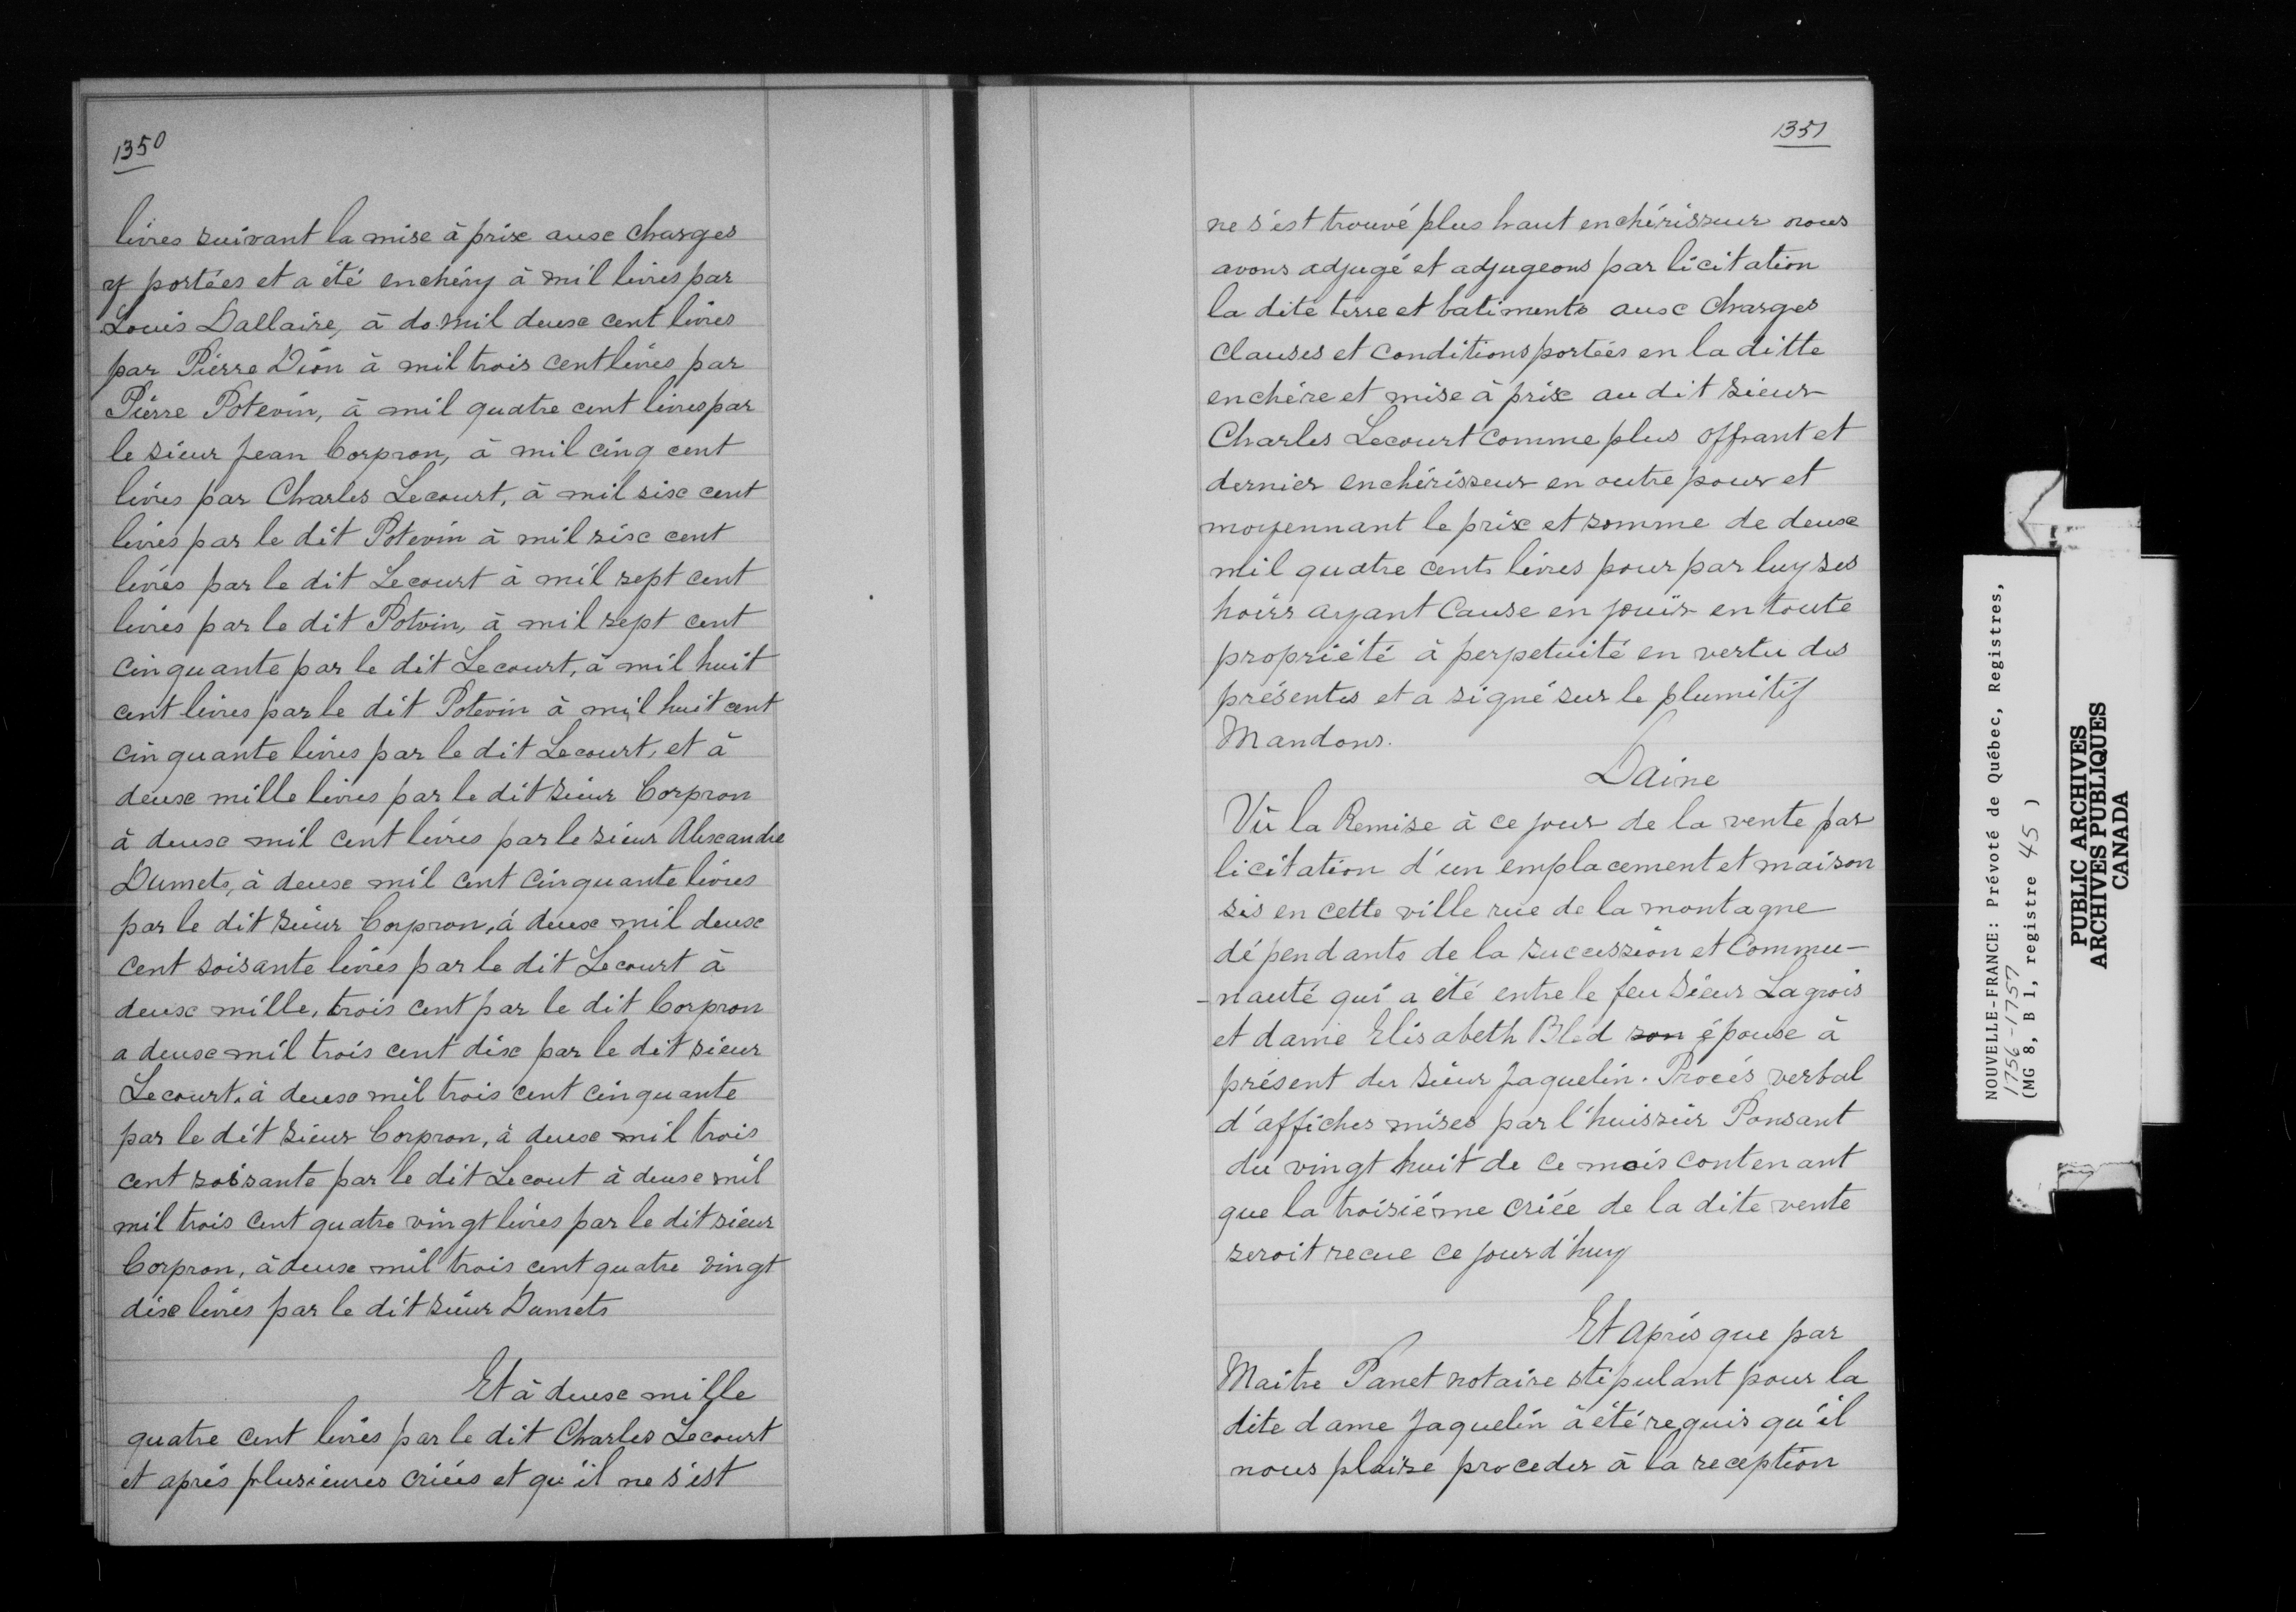 1350
livres suivant la mise à prix aux charges
y portées et a été enchéry à mil livres par
Louis Dallaire, à do. mil deux cent livres
par Pierre Dion à mil trois cent livres par
Pierre Potevin, à mil quatre cent livres par
le sieur Jean Corpron, à mil cinq cent
livres par Charles Lecourt, à mil six cent
livres par le dit Potevin à mil six cent
livres par le dit Lecourt à mil sept cent
livres par le dit Potvin, à mil sept cent
cinquante par le dit Lecourt, à mil huit
cent livres par le dit Potevin à mil huit cent
cinquante livres par le dit Lecourt, et à
deux mille livres par le dit sieur Corpron
à deux mil cent livres par le sieur Alexandre
Dumets, à deux mil cent cinquante livres
par le dit sieur Corpron, à deux mil deux
cent soisante livres par le dit Lecourt à
deux mille, trois cent par le dit Corpron
a deux mil trois cent dix par le dit sieur
Lecourt, à deux mil trois cent cinquante
par le dit sieur Corpron, à deux mil trois
cent soisante par le dit Lecout à deux mil
mil trois cent quatre vingt livres par le dit sieur
Corpron, à deux mil trois cent quatre vingt
dix livres par le dit sieur Dumets
Et à deux mille
quatre cent livres par le dit Charles Lecourt
et après plusieures criées et qu'il ne s'est
1351
ne s'est trouvé plus haut enchérisseur nous
avons adjugé et adjugeons par licitation
la dite terre et batiments aux charges
clauses et conditions portées en la ditte
enchére et mise à prix au dit sieur
Charles Lecourt comme plus offrant et
dernier enchérisseur en outre pour et
moyennant le prix et somme de deux
mil quatre cents livres pour par luy ses
hoirs ayant cause en jouir en toute
propriété à perpetuité en vertu des
présentes et a signé sur le plumitif
Mandons.
Daine
Vû la Remise à ce jour de la vente par
licitation d'un emplacement et maison
sis en cette ville rue de la montagne
dépendants de la succession et Commu-
-nauté qui a été entre le feu Sieur Lagrois
et dame Elisabeth Bled son épouse à
présent du sieur Jaquelin. Procès verbal
d'affiches mises par l'huissier Ponsant
du vingt huit de ce mois contenant
que la troisiéme criée de la dite vente
seroit recue ce jourd'huy
Et après que par
Maitre Panet notaire stipulant pour la
dite dame Jaquelin à été requis qu'il
nous plaise proceder à la reception
NOUVELLE-FRANCE: Prévoté de Québec, Registres,
1756-1757
(MG 8, B 1, registre 45 )
PUBLIC ARCHIVES
ARCHIVES PUBLIQUES
CANADA